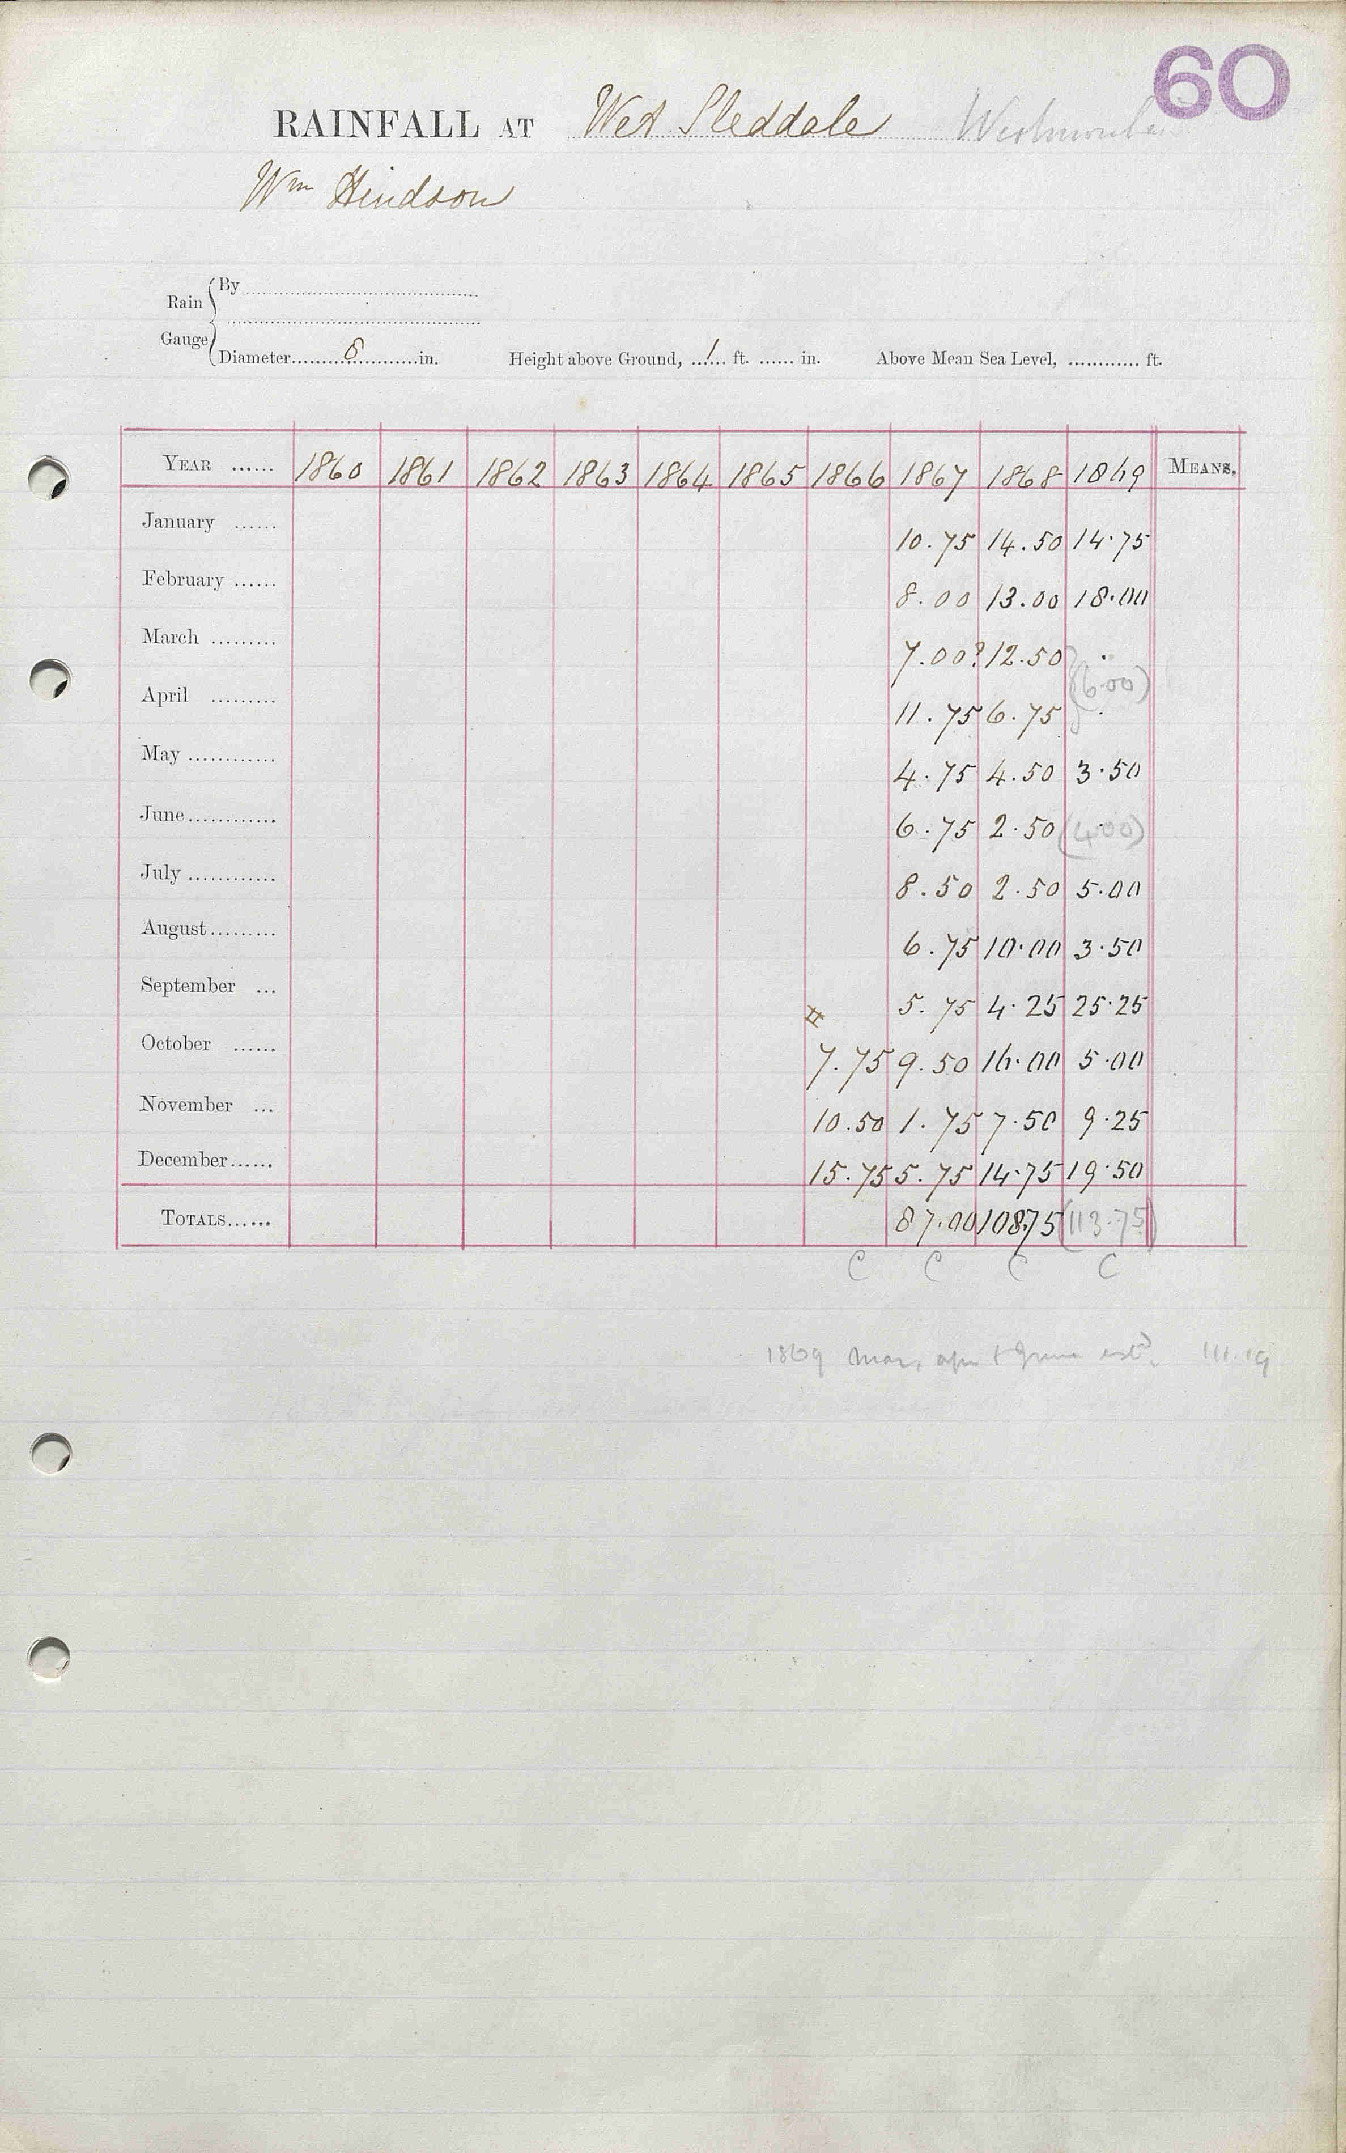 60
RAINFALL AT Wet Sleddale
Wm Hindson
Rain Gauge
By
Diameter 6 in. Height above Ground, 1 ft. in. Above Mean Sea Level, ft.
YEAR 1860 1861 1862 1863 1864 1865 1866 1867 1868 1869 MEANS.
January 10.75 14.50 14.75
February 8.00 13.00 18.00
March 7.00? 12.50 ..
(6.00)
April 11.75 6.75 .
May 4.75 4.50 3.50
June 6.75 2.50 (4.00)
July 8.50 2.50 5.00
August 6.75 10.00 3.50
September 5.75 4.25 25.25
October 7.75 9.50 16.00 5.00
November 10.50 1.75 7.50 9.25
December 15.75 5.75 14.75 19.50
TOTALS 87.00 108.75 (113.75)
C C C C
1869 Mar, apr & June estd. 111.19